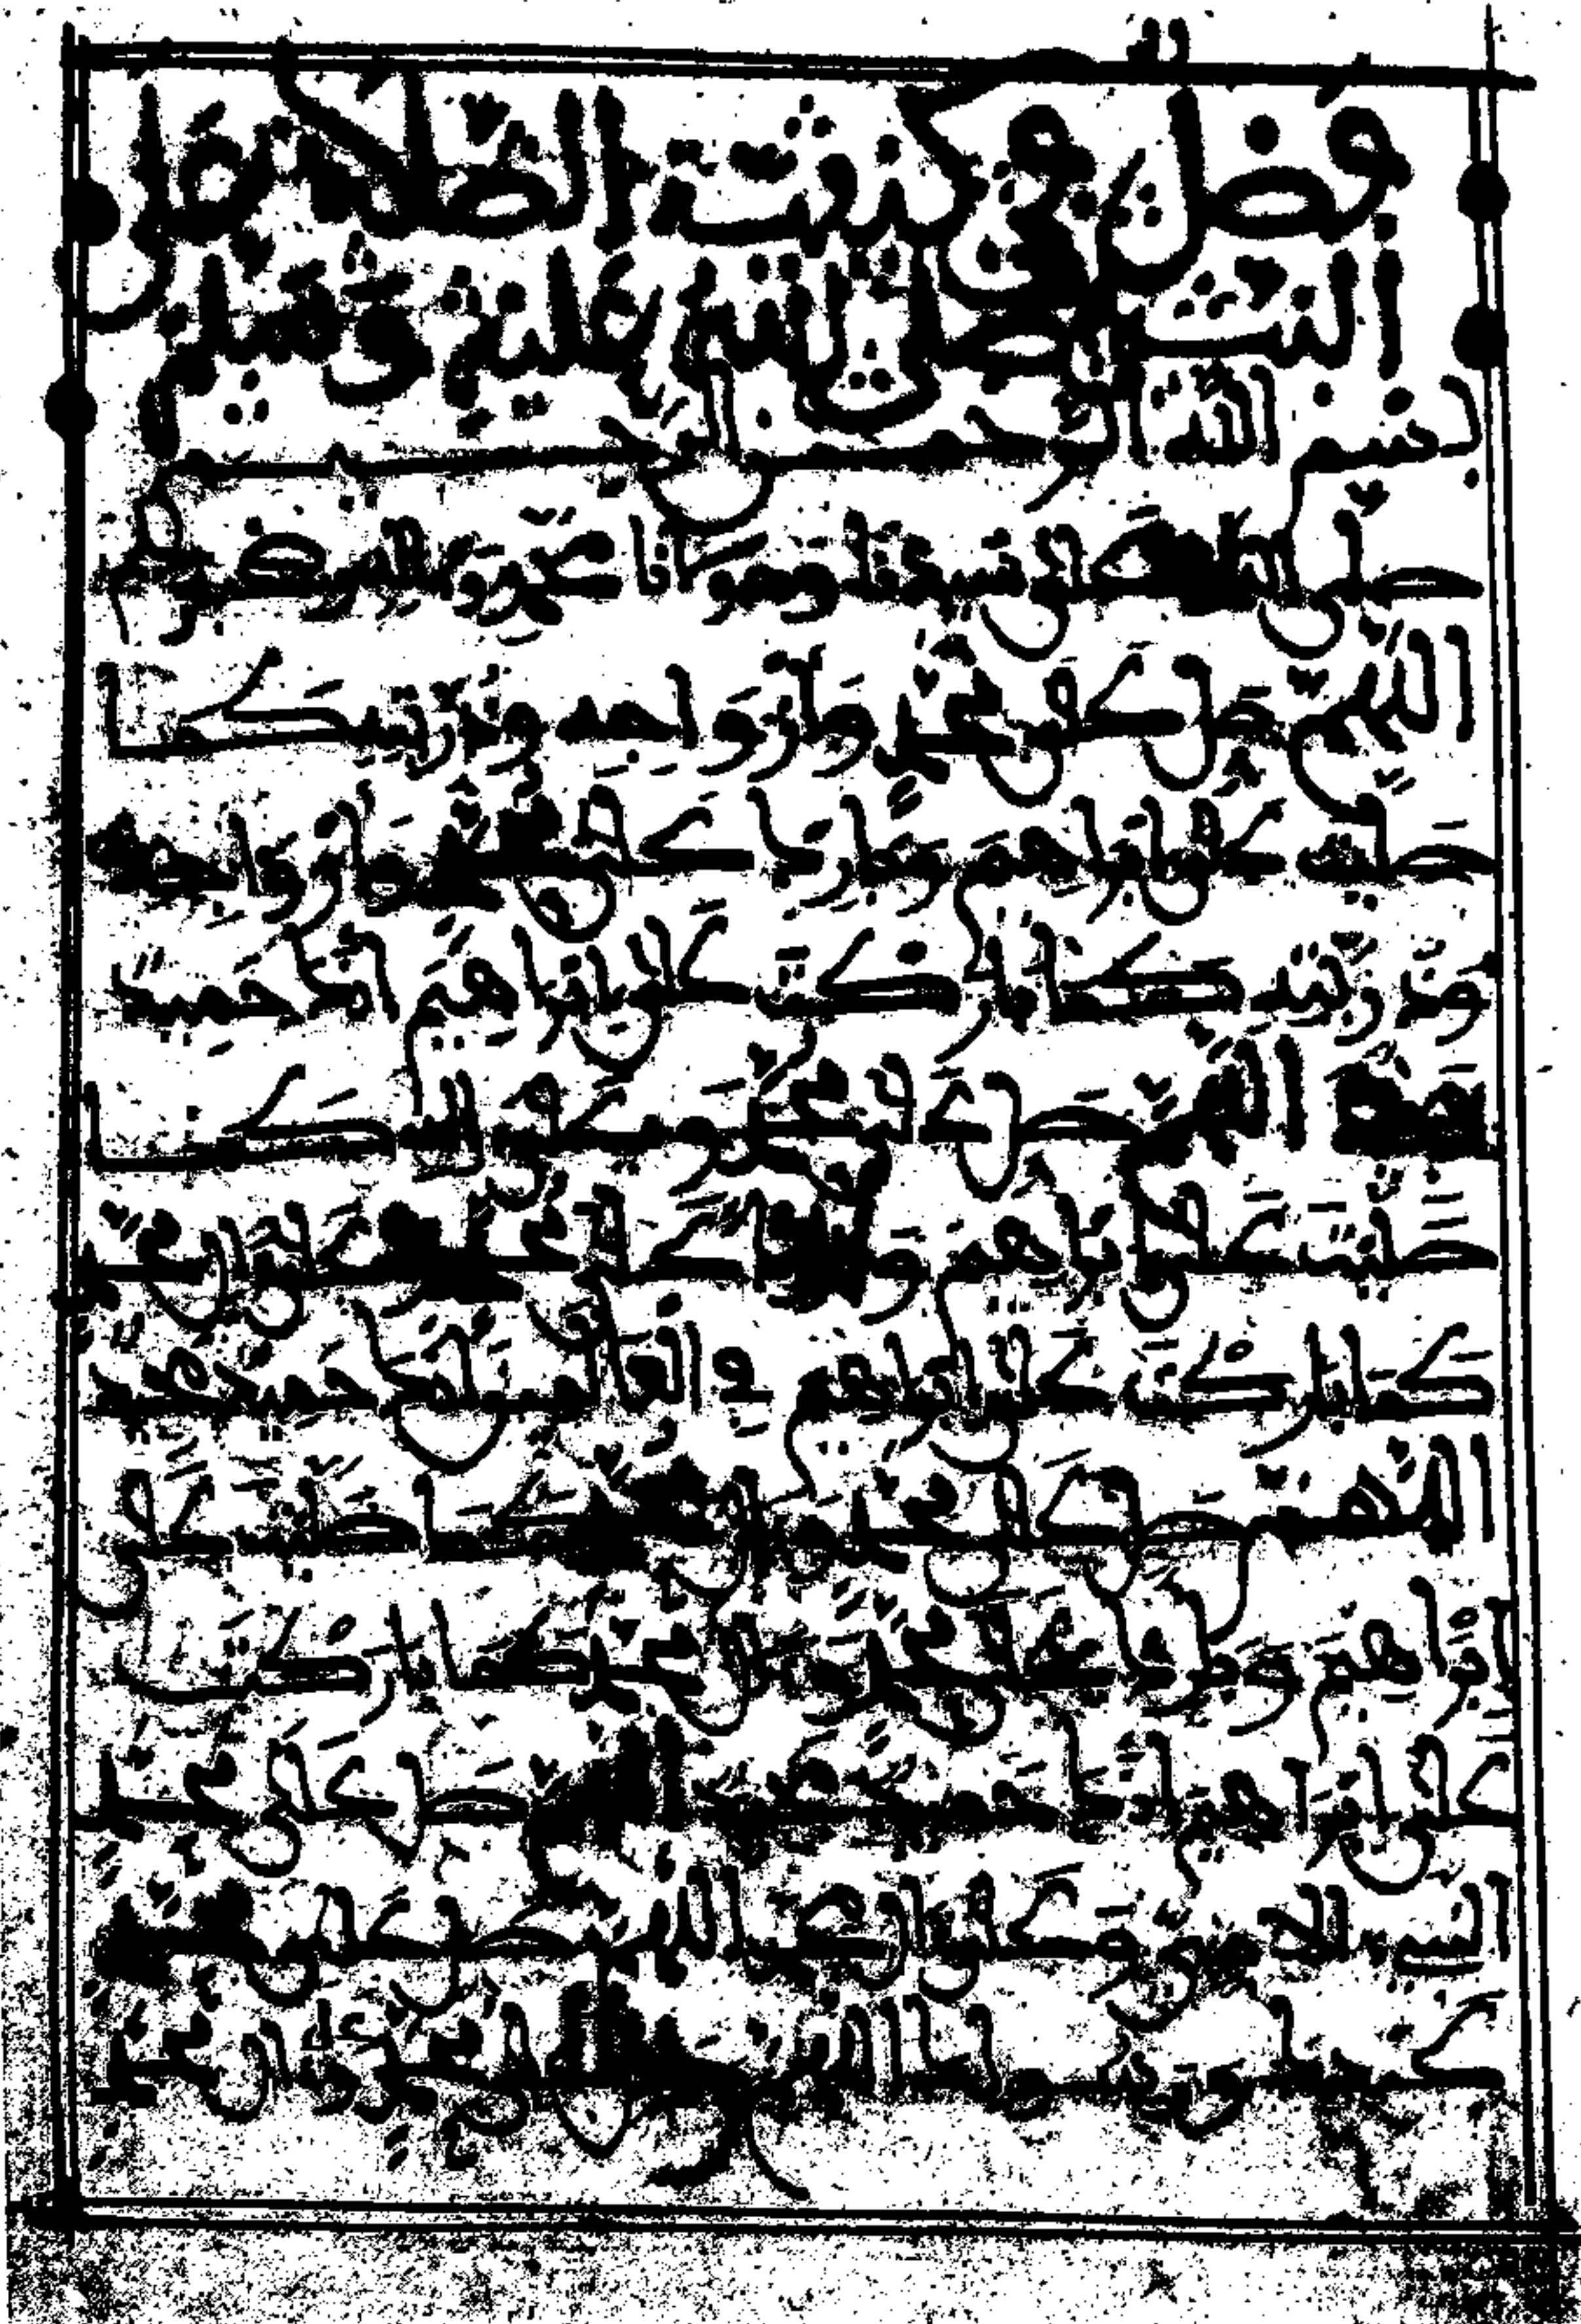 فصل في كيفية الصلاة على
النبي صلى الله عليه وسلم
بسم الله الرحمن الرحيم
صلى الله على سيدنا ومولانا محمد وءاله وصحبه وسلم
اللهم صل على محمد وأزواجه وذريته كما
صليت على إبراهيم وبارك على محمد وأزواجه
وذريته كما باركت على إبراهيم إنك حميد
مجيد اللهم صل على محمد وعلى ءاله كما
صليت على إبراهيم وبارك على محمد وعلى ءال محمد
كما باركت على إبراهيم في العالمين إنك حميد مجيد
اللهم صل على محمد وءال محمد كما صليت على
إبراهيم وبارك على محمد وءال محمد كما باركت
على إبراهيم إنك حميد مجيد اللهم صل على محمد
النبي الأمي وعلى ءال محمد اللهم صل على محمد
عبدك ورسولك اللهم صل على محمد وعلى ءال محمد